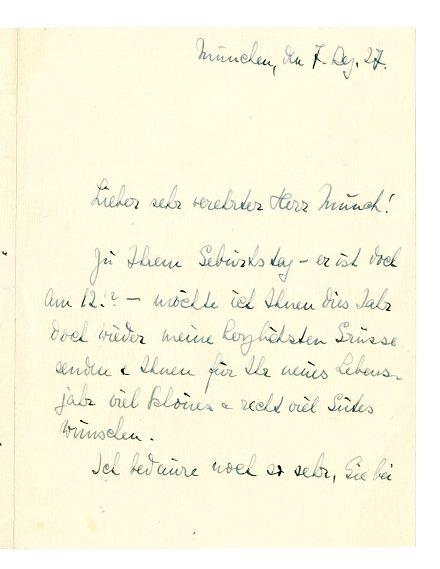 München, den 7. Dez. 27.
Lieber sehr verehrter Herr Münch!
Zu Ihrem Geburtstag – er ist doch
am 12.? – möchte ich Ihnen dies Jahr
doch wieder meine herzlichsten Grüsse
senden & Ihnen für Ihr neues Lebens-
jahr viel Schönes & recht viel Gutes
wünschen.
Ich bedaure noch so sehr, Sie bei